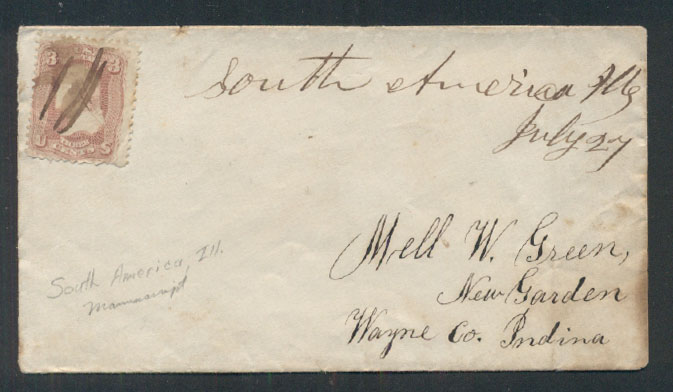 3 3
U S
South America Ills
July 27
Mell W. Green,
New Garden
Wayne Co. Indina
South America, Ill.
Manuscript